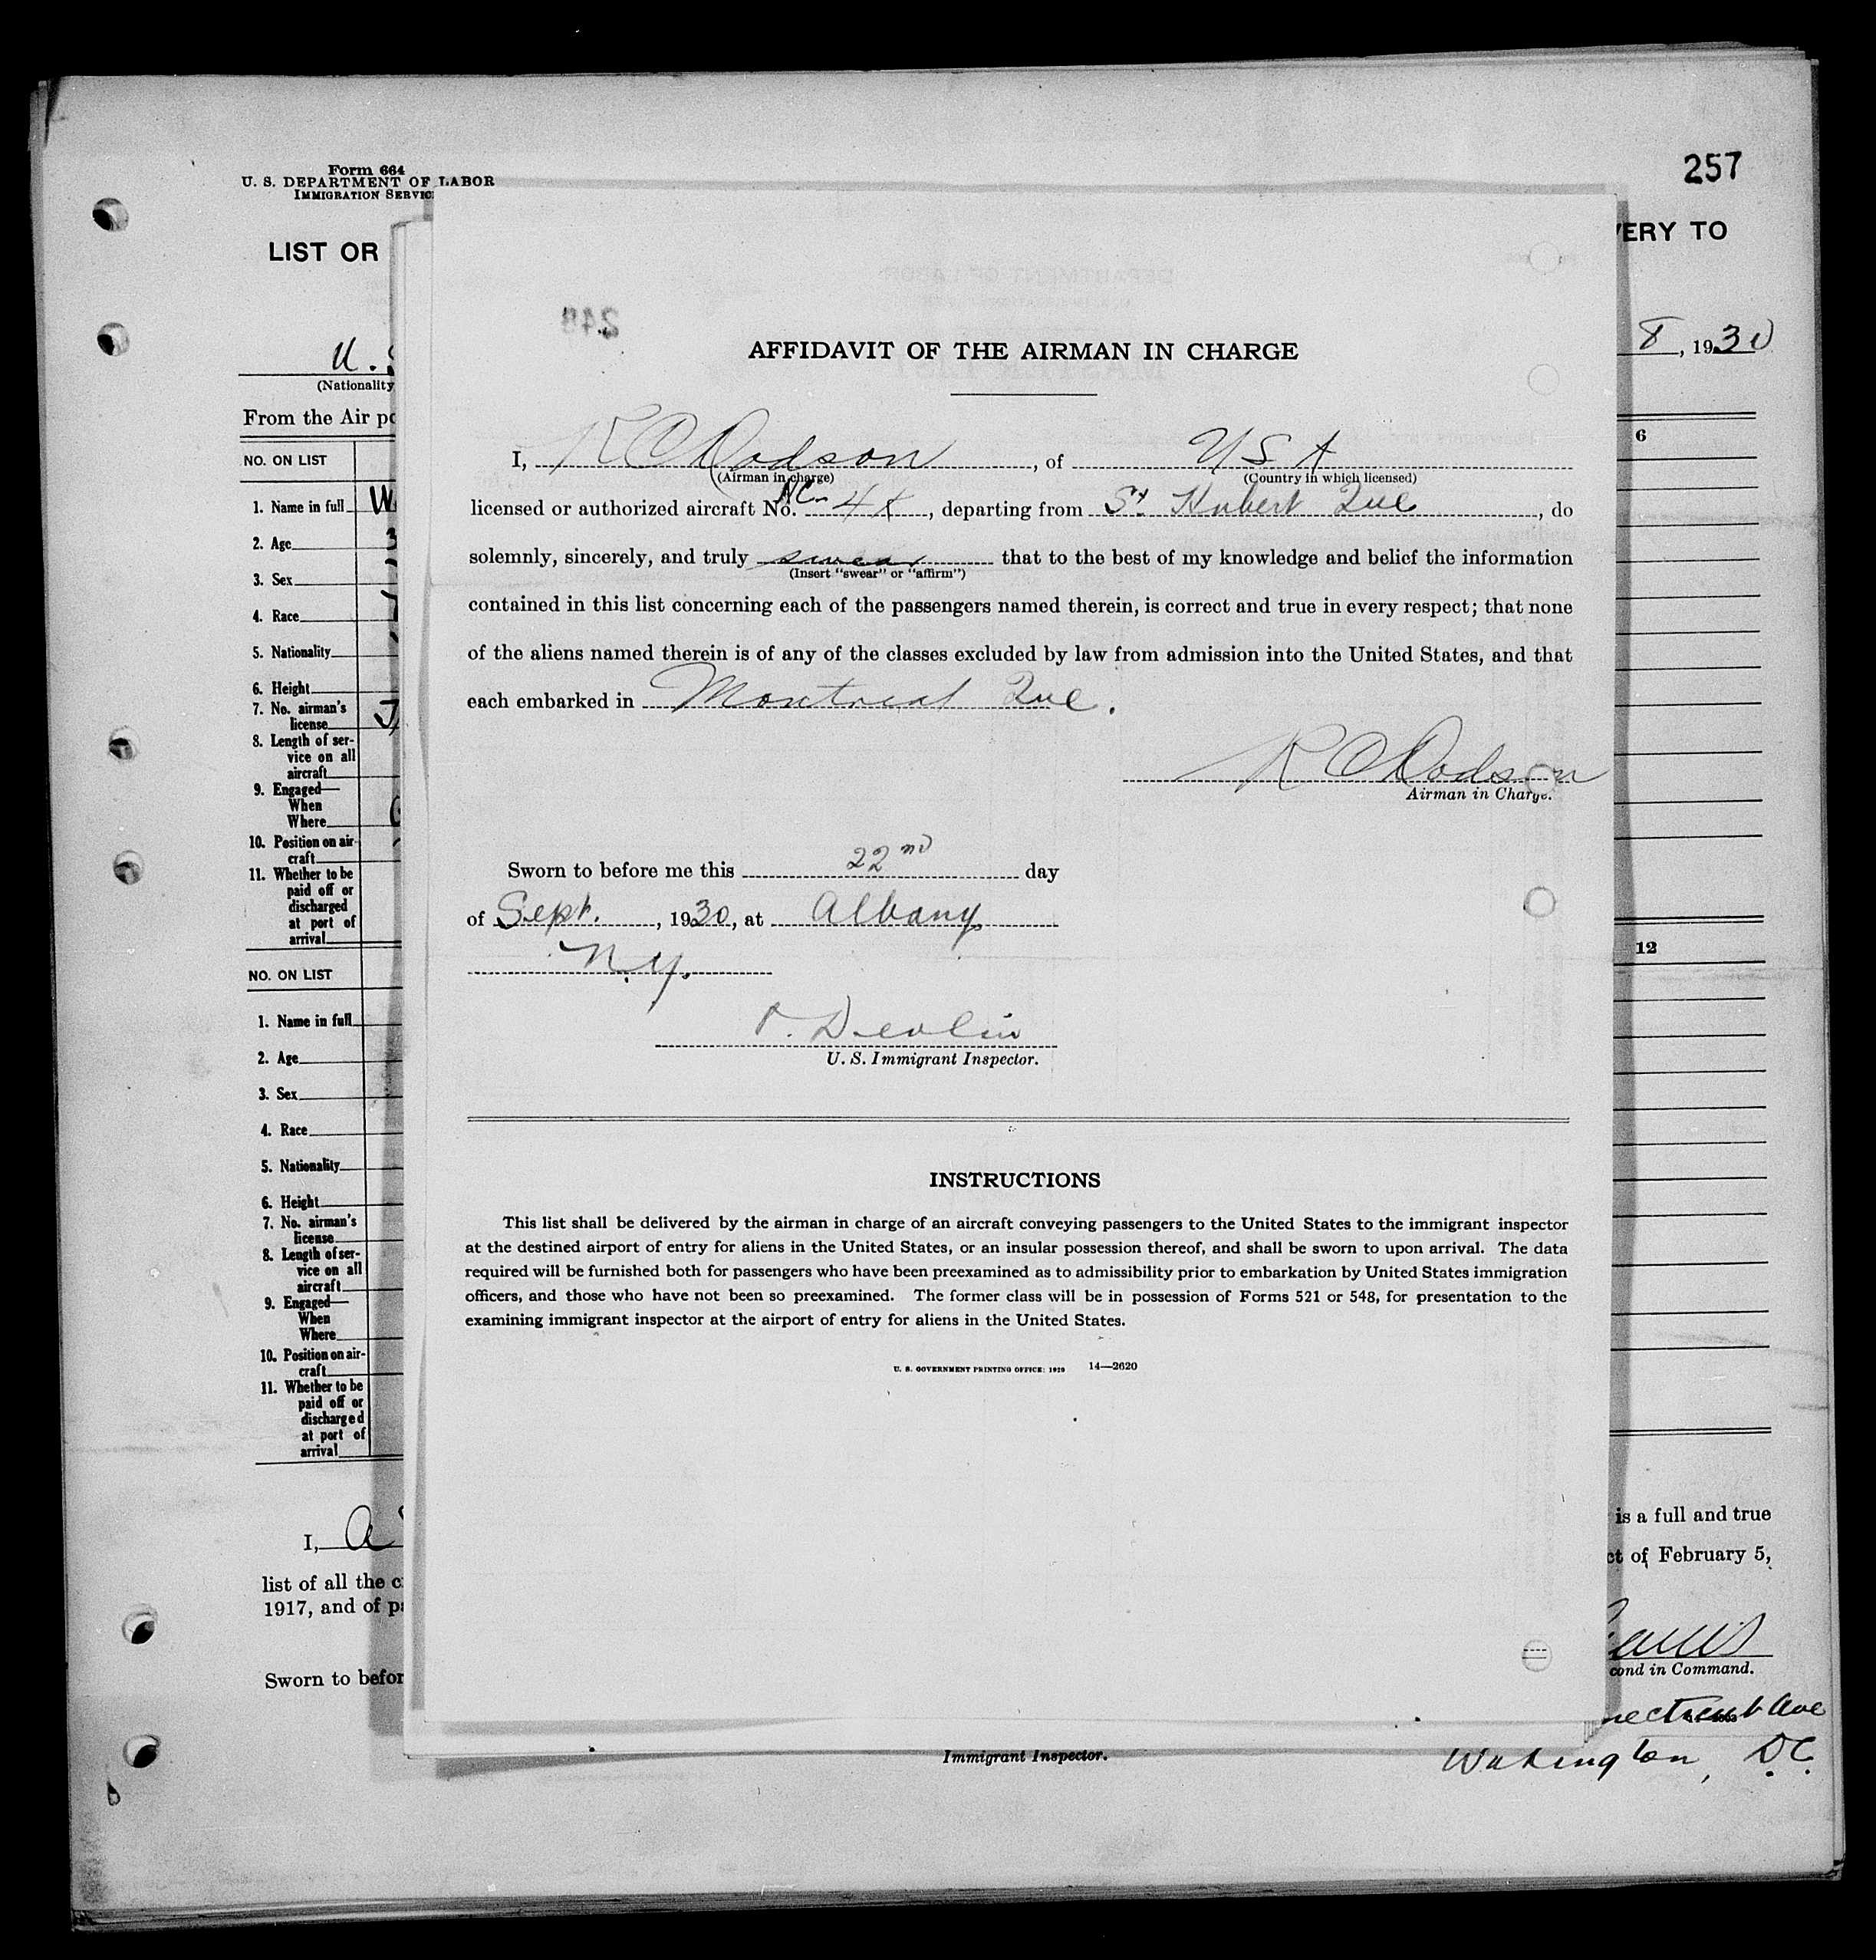 257
Form 664
U. S. DEPARTMENT OF LABOR
IMMIGRATION SERVIC
LIST OR
VERY TO
8, 1930
U.S
(Nationality
From the Air po
6
NO. ON LIST
1. Name in full
2. Age
3. Sex
4. Race
5. Nationality
6. Height
7. No. airman's
license
8. Length of ser-
vice on all
aircraft
9. Engaged—
When
Where
10. Position on air-
craft
11. Whether to be
paid off or
discharged
at port of
arrival
12
NO. ON LIST
1. Name in full
2. Age
3. Sex
4. Race
5. Nationality
6. Height
7. No. airman's
license
8. Length of ser-
vice on all
aircraft
9. Engaged—
When
Where
10. Position on air-
craft
11. Whether to be
paid off or
discharged
at port of
arrival
I,
is a full and true
list of all the c
ct of February 5,
1917, and of pa
cond in Command.
Sworn to befor
necticut Ave
Immigrant Inspector.
Wahington, D.C.
248
AFFIDAVIT OF THE AIRMAN IN CHARGE
I, R C Dodson, of U S A
(Airman in charge) (Country in which licensed)
licensed or authorized aircraft No. NC-4X, departing from St Hubert Que, do
solemnly, sincerely, and truly swear that to the best of my knowledge and belief the information
(Insert "swear" or "affirm")
contained in this list concerning each of the passengers named therein, is correct and true in every respect; that none
of the aliens named therein is of any of the classes excluded by law from admission into the United States, and that
each embarked in Montreal Que.
R C Dodson
Airman in Charge.
Sworn to before me this 22nd day
of Sept., 1930, at Albany
N.Y.
P. Devlin
U. S. Immigrant Inspector.
INSTRUCTIONS
This list shall be delivered by the airman in charge of an aircraft conveying passengers to the United States to the immigrant inspector
at the destined airport of entry for aliens in the United States, or an insular possession thereof, and shall be sworn to upon arrival. The data
required will be furnished both for passengers who have been preexamined as to admissibility prior to embarkation by United States immigration
officers, and those who have not been so preexamined. The former class will be in possession of Forms 521 or 548, for presentation to the
examining immigrant inspector at the airport of entry for aliens in the United States.
U. S. GOVERNMENT PRINTING OFFICE: 1929 14—2620